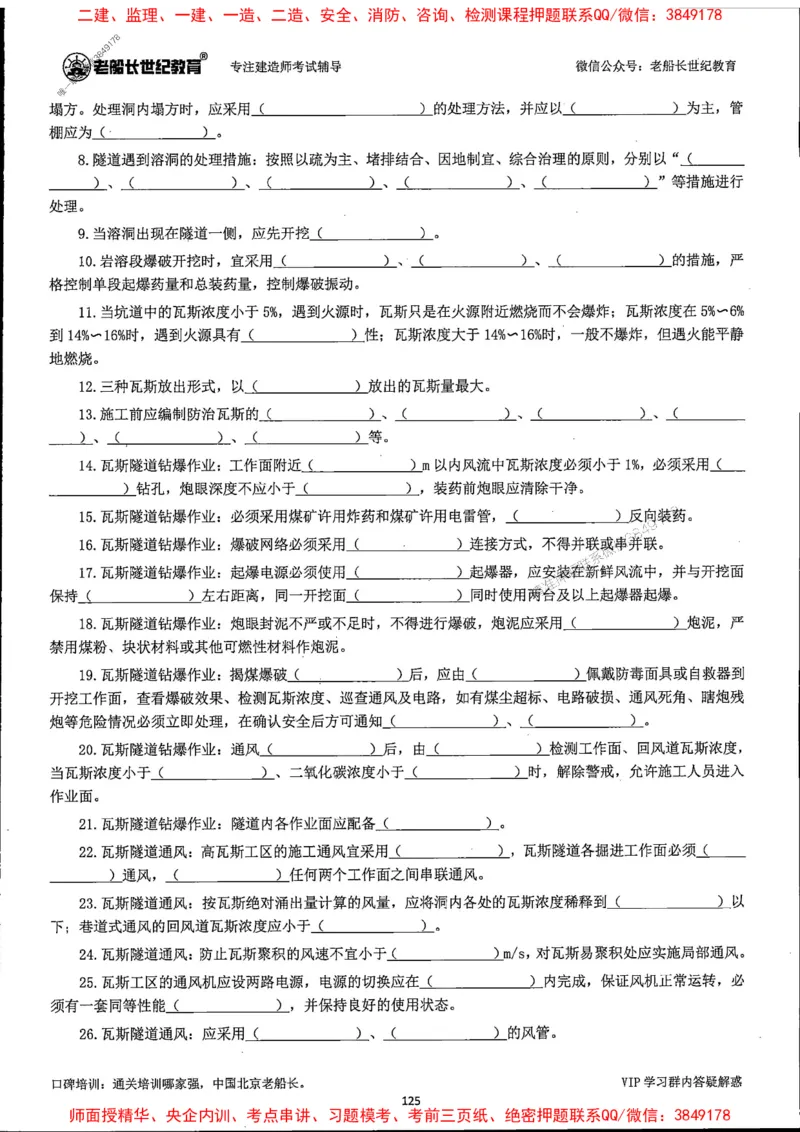 二建、监理、一建、一造、二造、安全、消防、咨询、检测课程押题联系QQ/微信：3849178
老船长世纪教育® 专注建造师考试辅导 微信公众号：老船长世纪教育
塌方。处理洞内塌方时，应采用（ ）的处理方法，并应以（ ）为主，管
棚应为（ ）。
8.隧道遇到溶洞的处理措施：按照以疏为主、堵排结合、因地制宜、综合治理的原则，分别以“（
）、（ ）、（ ）、（ ）、（ ）”等措施进行
处理。
9.当溶洞出现在隧道一侧，应先开挖（ ）。
10.岩溶段爆破开挖时，宜采用（ ）、（ ）、（ ）的措施，严
格控制单段起爆药量和总装药量，控制爆破振动。
11.当坑道中的瓦斯浓度小于5%，遇到火源时，瓦斯只是在火源附近燃烧而不会爆炸；瓦斯浓度在5%～6%
到14%～16%时，遇到火源具有（ ）性；瓦斯浓度大于14%～16%时，一般不爆炸，但遇火能平静
地燃烧。
12.三种瓦斯放出形式，以（ ）放出的瓦斯量最大。
13.施工前应编制防治瓦斯的（ ）、（ ）、（ ）、（
）、（ ）、（ ）等。
14.瓦斯隧道钻爆作业：工作面附近（ ）m以内风流中瓦斯浓度必须小于1%，必须采用（
）钻孔，炮眼深度不应小于（ ），装药前炮眼应清除干净。
15.瓦斯隧道钻爆作业：必须采用煤矿许用炸药和煤矿许用电雷管，（ ）反向装药。
16.瓦斯隧道钻爆作业：爆破网络必须采用（ ）连接方式，不得并联或串并联。
17.瓦斯隧道钻爆作业：起爆电源必须使用（ ）起爆器，应安装在新鲜风流中，并与开挖面
保持（ ）左右距离，同一开挖面（ ）同时使用两台及以上起爆器起爆。
18.瓦斯隧道钻爆作业：炮眼封泥不严或不足时，不得进行爆破，炮泥应采用（ ）炮泥，严
禁用煤粉、块状材料或其他可燃性材料作炮泥。
19.瓦斯隧道钻爆作业：揭煤爆破（ ）后，应由（ ）佩戴防毒面具或自救器到
开挖工作面，查看爆破效果、检测瓦斯浓度、巡查通风及电路，如有煤尘超标、电路破损、通风死角、瞎炮残
炮等危险情况必须立即处理，在确认安全后方可通知（ ）、（ ）。
20.瓦斯隧道钻爆作业：通风（ ）后，由（ ）检测工作面、回风道瓦斯浓度，
当瓦斯浓度小于（ ）、二氧化碳浓度小于（ ）时，解除警戒，允许施工人员进入
作业面。
21.瓦斯隧道钻爆作业：隧道内各作业面应配备（ ）。
22.瓦斯隧道通风：高瓦斯工区的施工通风宜采用（ ），瓦斯隧道各掘进工作面必须（
）通风，（ ）任何两个工作面之间串联通风。
23.瓦斯隧道通风：按瓦斯绝对涌出量计算的风量，应将洞内各处的瓦斯浓度稀释到（ ）以
下；巷道式通风的回风道瓦斯浓度应小于（ ）。
24.瓦斯隧道通风：防止瓦斯聚积的风速不宜小于（ ）m/s，对瓦斯易聚积处应实施局部通风。
25.瓦斯工区的通风机应设两路电源，电源的切换应在（ ）内完成，保证风机正常运转，必
须有一套同等性能（ ），并保持良好的使用状态。
26.瓦斯隧道通风：应采用（ ）、（ ）的风管。
口碑培训：通关培训哪家强，中国北京老船长。 VIP学习群内答疑解惑
125
师面授精华、央企内训、考点串讲、习题模考、考前三页纸、绝密押题联系QQ/微信：3849178